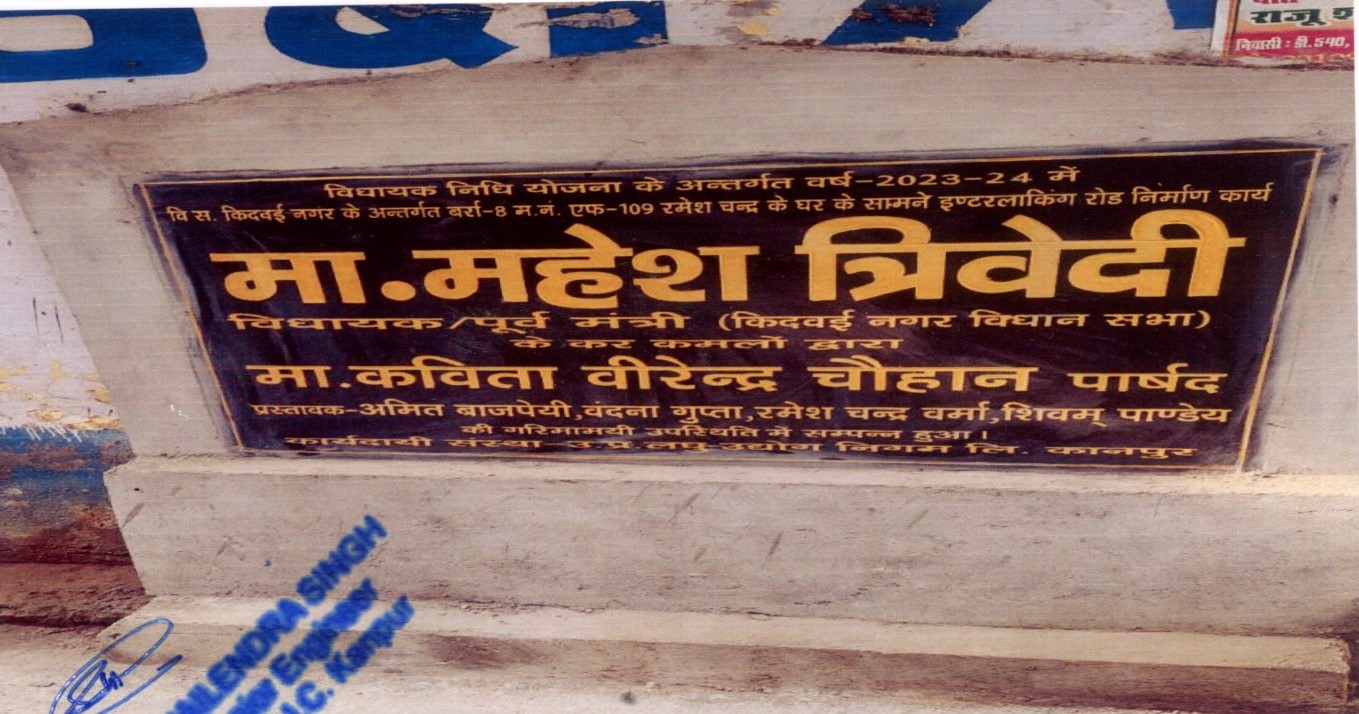 राजू
निवासी : डी.540,
विधायक निधि योजना के अन्तर्गत वर्ष-2023-24 में
वि स. किदवई नगर के अन्तर्गत बर्रा-8 म.नं. एफ-109 रमेश चन्द्र के घर के सामने इण्टरलाकिंग रोड निर्माण कार्य
मा.महेश त्रिवेदी
विधायक/पूर्व मंत्री (किदवई नगर विधान सभा)
के कर कमलों द्वारा
मा.कविता वीरेन्द्र चौहान पार्षद
प्रस्तावक-अमित बाजपेयी,वंदना गुप्ता,रमेश चन्द्र वर्मा,शिवम् पाण्डेय
की गरिमामयी उपस्थिति में सम्पन्न हुआ।
कार्यदायी संस्था-उ.प्र.लघु उद्योग निगम लि. कानपुर
SINGH
Engineer
Kanpur